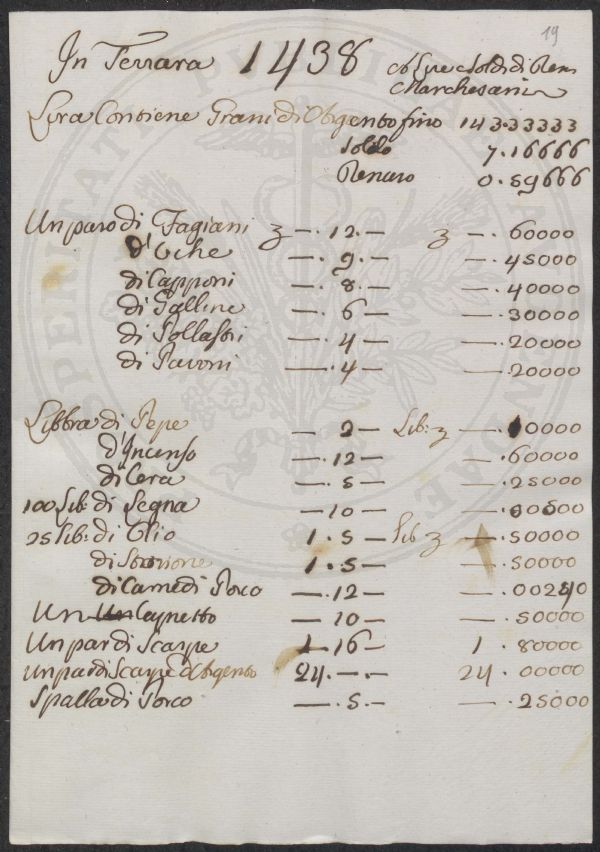 19
In Ferrara 1438 a Lire e Soldi di Den.
Marchesani
Lira Contiene Grani di Argento fino 143.33333
Soldo 7.16666
Denaro 0.59666
Un paro di Fagiani 3 — . 12 . — 3 — . 60000
d'Oche — . 9 . — — . 45000
di Capponi — . 8 . — — . 40000
di Galline — . 6 — — . 30000
di Pollastri — . 4 — — . 20000
di Pavoni — . 4 — — . 20000
Libbra di Pepe — 2 — Lib: 3 — . 10000
d'Incenso — . 12 — — . 60000
di Cera — . 5 — — . 25000
100 Lib: di Legna — 10 — — . 00500
25 Lib: di Olio 1 . 5 — Lib 3 — . 50000
di Storione 1 . 5 — — . 50000
di Carne di Porco — . 12 — — . 00240
Un Capretto — 10 — — . 50000
Un par di Scarpe 1 16 — 1 . 80000
Un par di Scarpe d'Argento 24 . — . 24 . 00000
Spalla di Porco — . 5 . — — . 25000